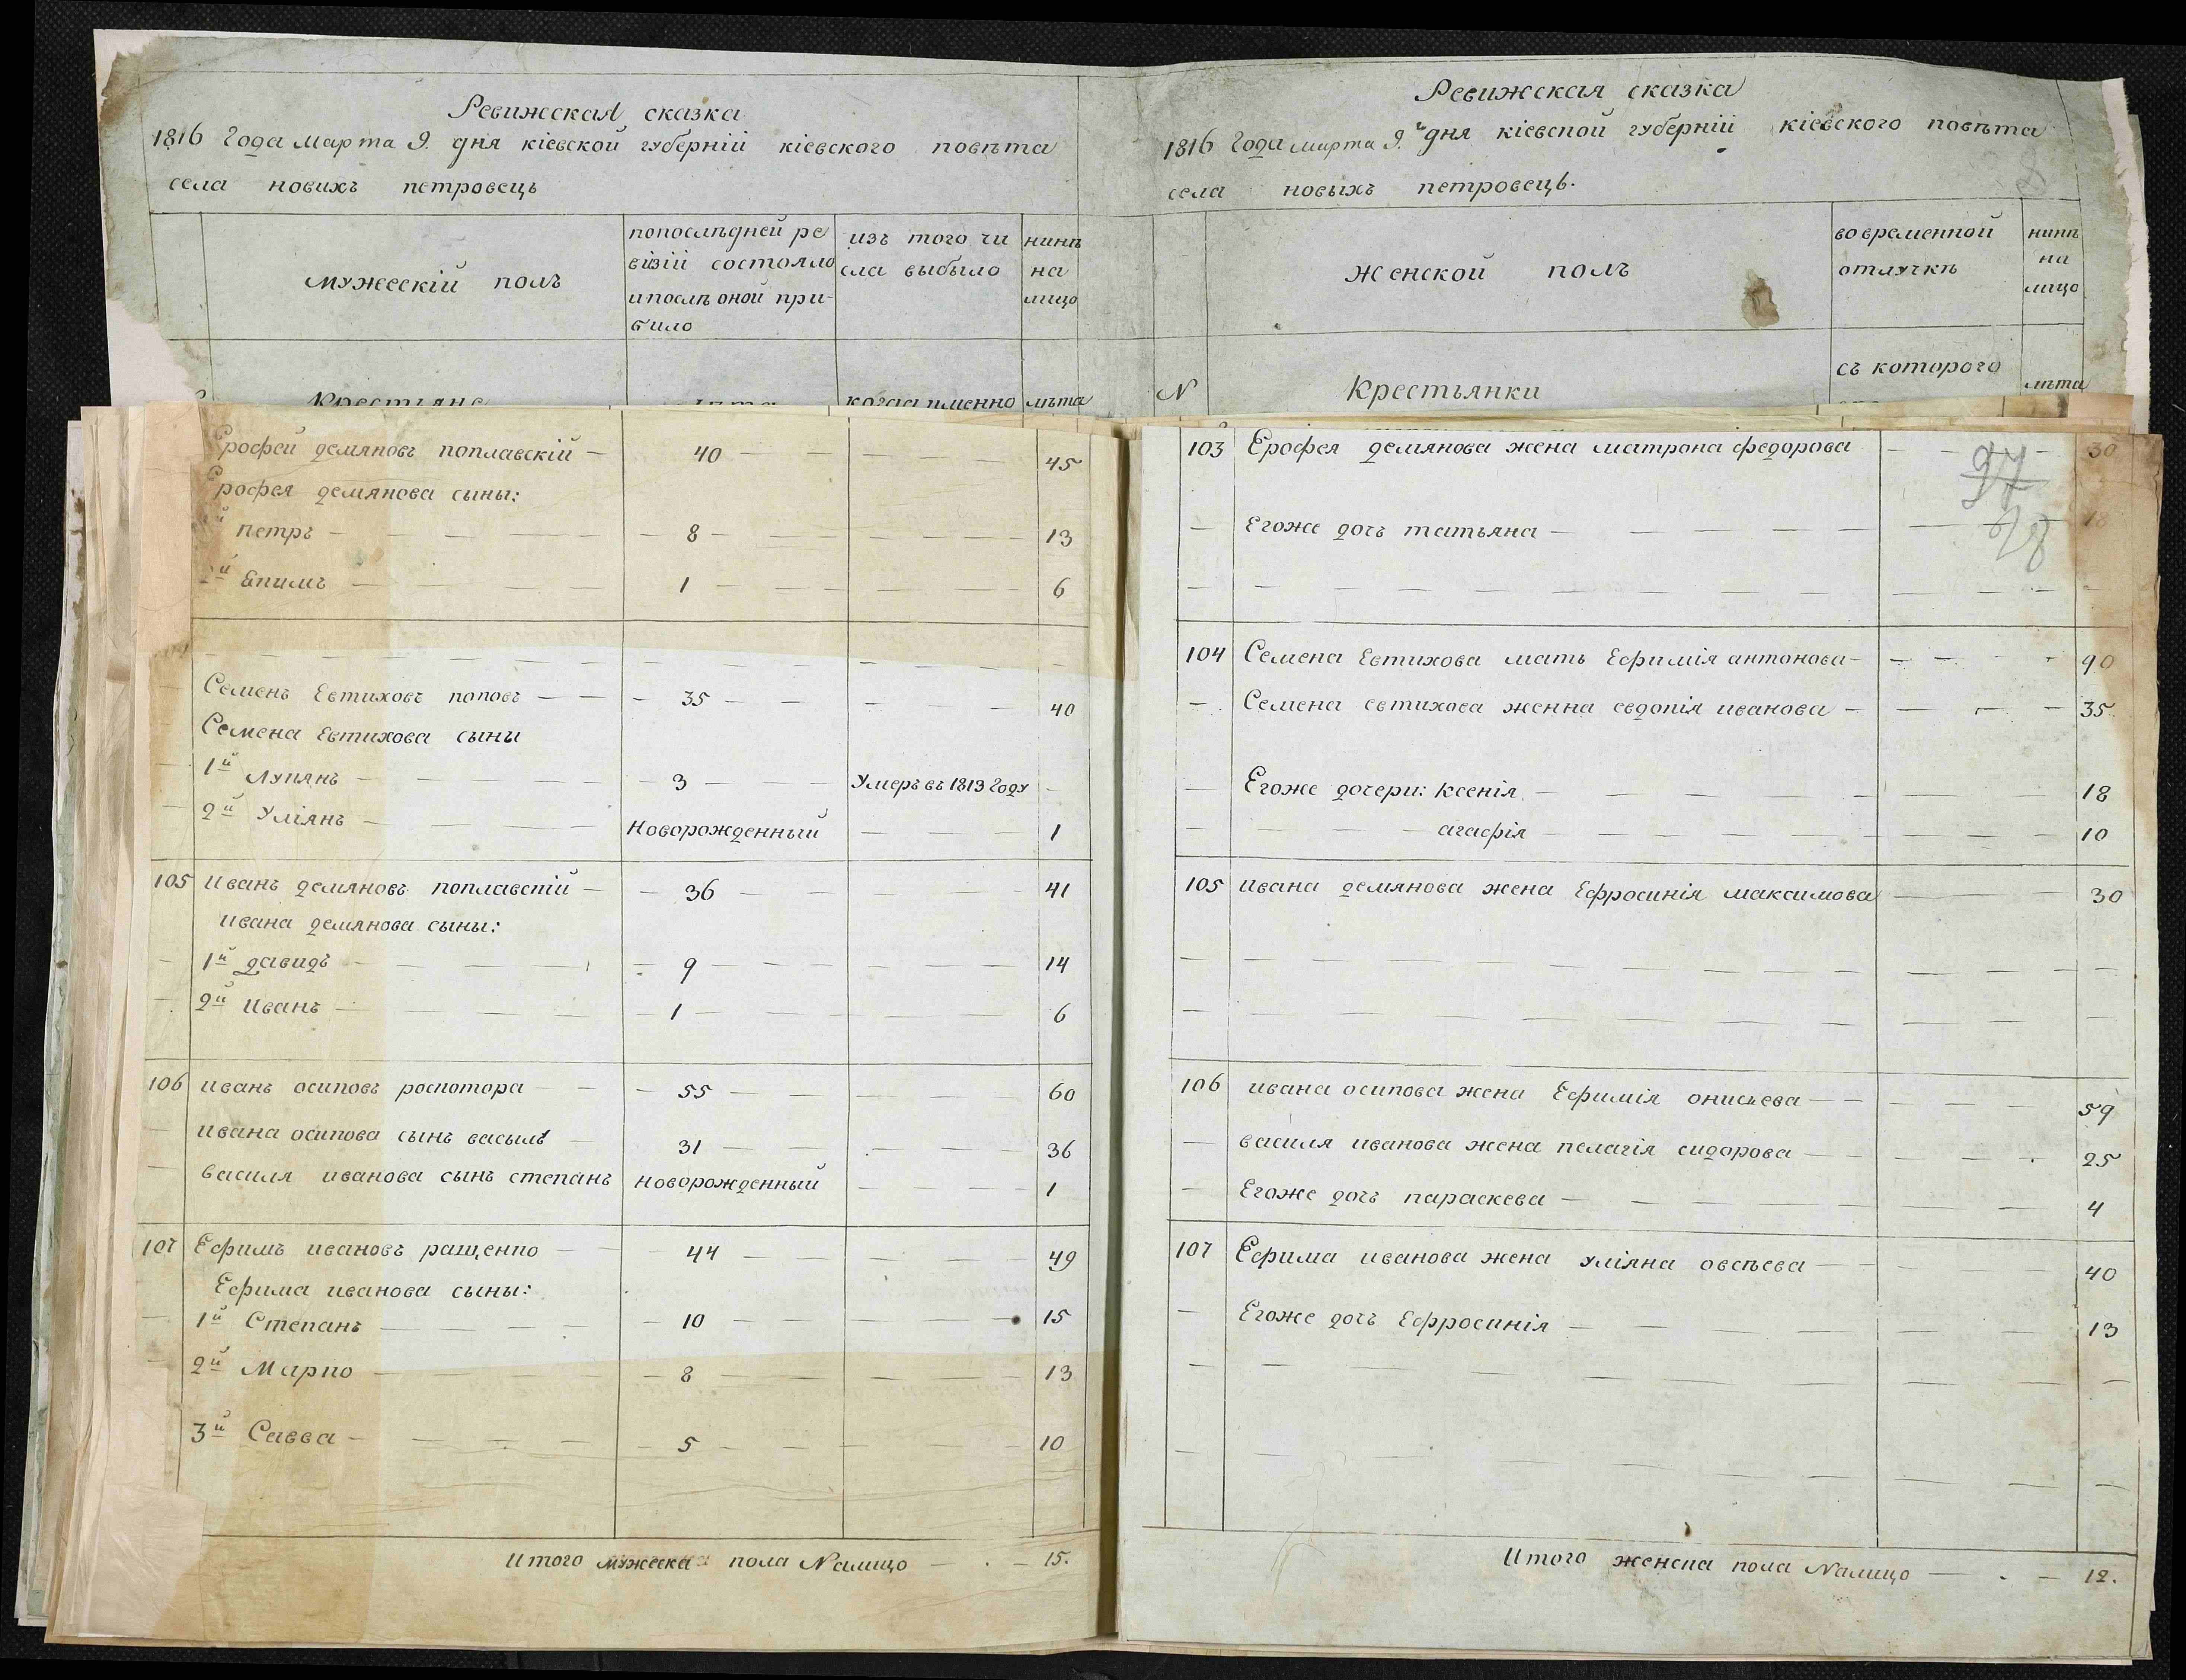 Ревижская сказка
1816 Года марта 9. дня кіевской губерніи кіевского повѣта
села новихъ петровець
мужескій полъ
попослѣдней ре
візіи состояло
ипослѣ оной при-
било
изъ того чи
сла выбыло
нинѣ
на
лицо
Крестьяне
лѣта
когда именно
лѣта
Ревижская сказка
1816 Года марта 9.ъ дня кіевской губерніи кіевского повѣта
села новыхъ петровець.
женской полъ
вовременной
отлучкѣ
нинѣ
на
лицо
N
Крестьянки
съ которого
лѣта
Ерофей демяновъ поплавскій — 40 — 45
Ерофея демянова сыны:
петръ — 8 — 13
2й Епимъ — 1 — 6
Семенъ Евтиховъ поповъ — 35 — 40
Семена Евтихова сыны
1й Лупянъ — 3 — Умеръ въ 1813 Году —
2й Уліянъ — Новорожденный — 1
105 иванъ демяновъ поплавскій — 36 — 41
ивана демянова сыны:
1й давидъ — 9 — 14
2й Иванъ — 1 — 6
106 иванъ осиповъ роспотора — 55 — 60
ивана осипова сынъ васыль — 31 — 36
василя иванова сынъ степанъ Новорожденный — 1
107 Ефимъ ивановъ ращенко — 44 — 49
Ефима иванова сыны:
1й Степанъ — 10 — 15
2й Марко — 8 — 13
3й Савва — 5 — 10
Итого мужеска пола Налицо — 15.
103 Ерофея демянова жена матрона федорова — 30
97
98
— Егоже дочъ татьяна — 18
104 Семена Евтихова мать Ефимія антонова — 90
— Семена евтихова женна евдокія иванова — 35
— Егоже дочери: ксенія — 18
— агафія — 10
105 ивана демянова жена Ефросинія максимова — 30
106 ивана осипова жена Ефимія онисьева — 59
— василя иванова жена пелагія сидорова — 25
— Егоже дочъ параскева — 4
107 Ефима иванова жена уліяна овсѣева — 40
— Егоже дочъ Ефросинія — 13
Итого женска пола Налицо — 12.